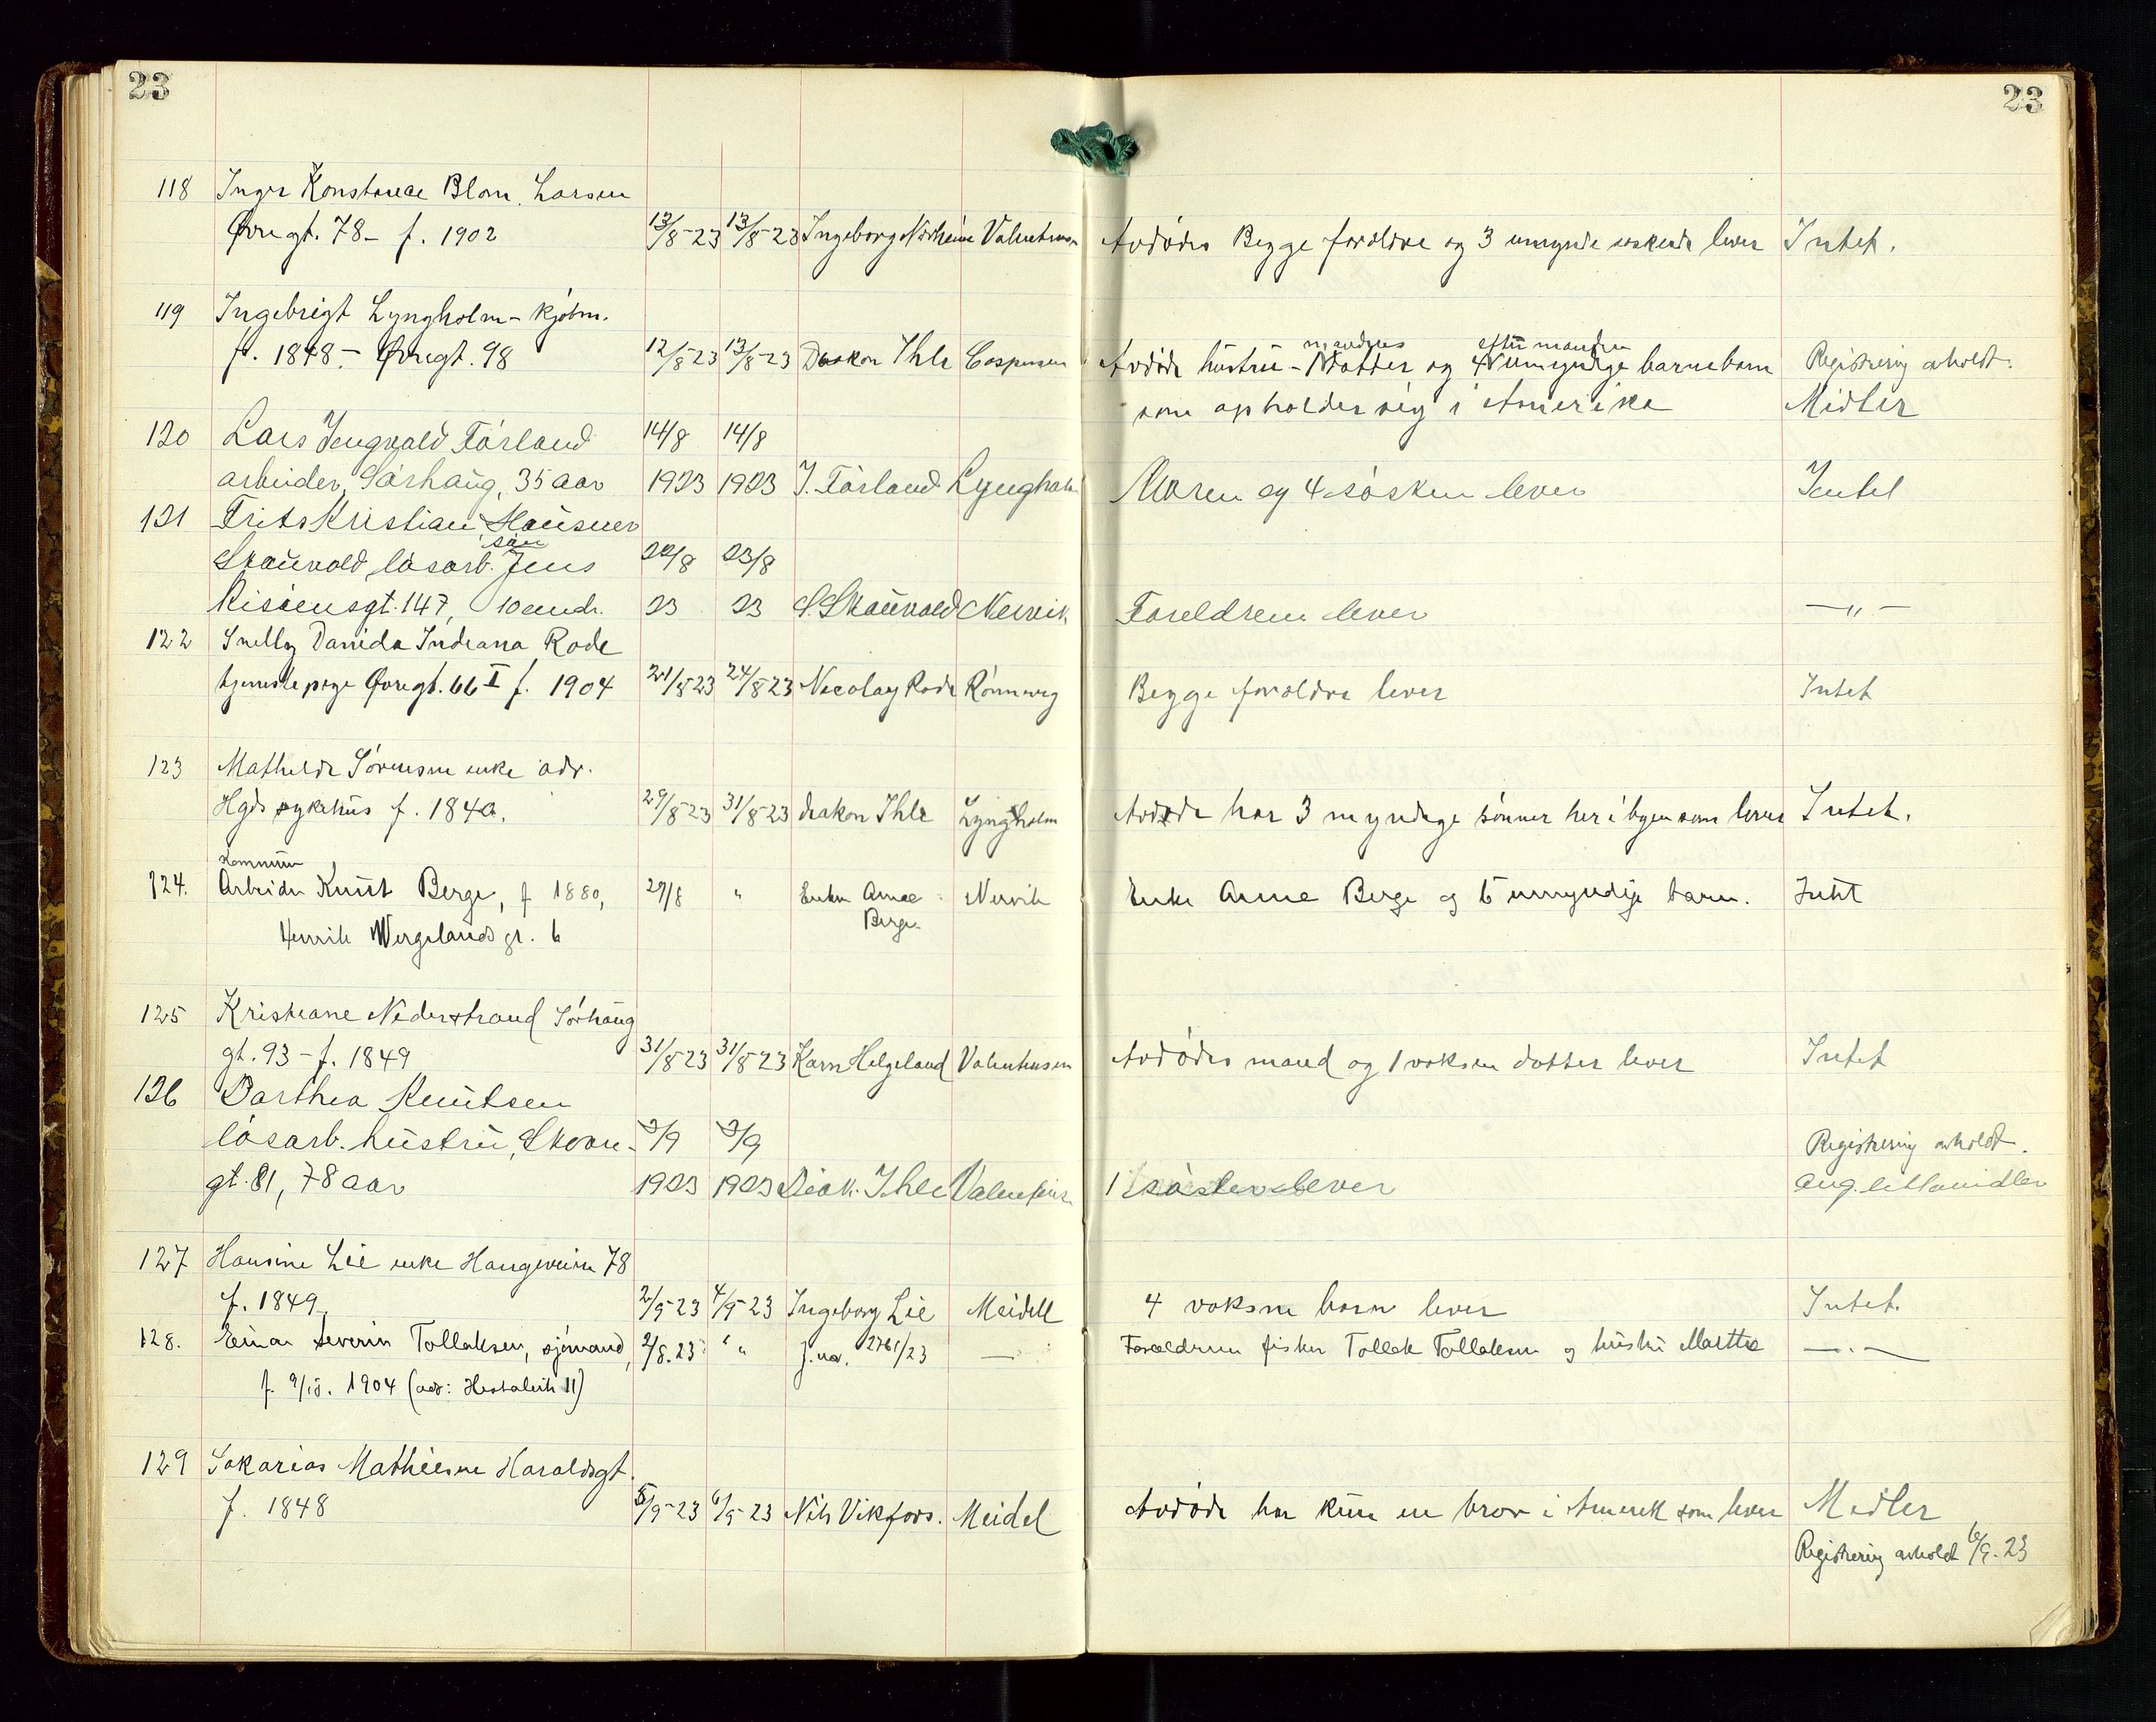 23
23
118 Inger Konstance Blom. Larsen
Øvregt. 78 - f. 1902 13/8-23 13/8-23 Ingeborg Norheim Valentinsen Avdødes Begge foreldre og 3 umyndi søskende lever Intet.
119 Ingebrigt Lyngholm - kjøbm.
mandens efter manden
f. 1848 - Øvregt. 98 12/8-23 13/8-23 Diakon Ihle Caspersen Avdøde hustru - 1 datter og 4 umyndige barnebarn Registrering avholdt.
som opholder sig i Amerika Midler
120 Lars Ingvald Førland 14/8 14/8
arbeider, Sørhaug, 35 aar 1923 1923 J. Førland Lyngholm Moren og 4 søsken lever Intet
121 Frits Kristian Hausner
søn
Skauvold, løsarb. Jens 22/8 23/8
Risøensgt. 147, 10 mdr. 23 23 S. Skauvold Nervik Foreldrene lever — „ —
122 Snelly Danida Indiana Rode
tjenestepige Øvregt. 66 II f. 1904 21/8 23 24/8 23 Nicolay Rode Rønnevig Begge foreldre lever Intet
123 Mathilde Sørensen enke adr.
Hgds sykehus f. 1840. 29/8 23 31/8 23 diakon Ihle Lyngholm Avdøde har 3 myndige sønner her i byen som lever Intet.
kommune
124. Arbeider Knut Berge, f 1880, 29/8 " Enken Anna Berge Nervik Enke Anna Berge og 6 umyndige barn. Intet
Henrik Wergelands gt. 6
125 Kristiane Nederstrand Sørhaug
gt. 93 - f. 1849 31/8 23 31/8 23 Karn Helgeland Valentinsen Avdødes mand og 1 voksen datter lever Intet
126 Dorthea Knutsen
løsarb. hustru, Skoan- 3/9 3/9 Registrering avholdt.
gt. 81, 78 aar 1923 1923 Diak. Ihle Valentins. 1 søster lever ang. litt midler
127 Hansine Lie enke Haugeveien 78
f. 1849. 2/9-23 4/9-23 Ingeborg Lie Meidell 4 voksne barn lever Intet.
128. Einar Severin Tollaksen, sjømand, 2/8.23 " " j.no. 2761/23 — Forældrene fisker Tollak Tollaksen og hustru Marthe — . —
f. 9/12. 1904 (adr: Hestaleite 11)
129 Sakarias Mathiesen Haraldsgt.
f. 1848 5/9-23 6/9-23 Nils Vikfors. Meidel Avdøde har kun en bror i Amerik som lever Midler
Registrering avholdt 6/9-23